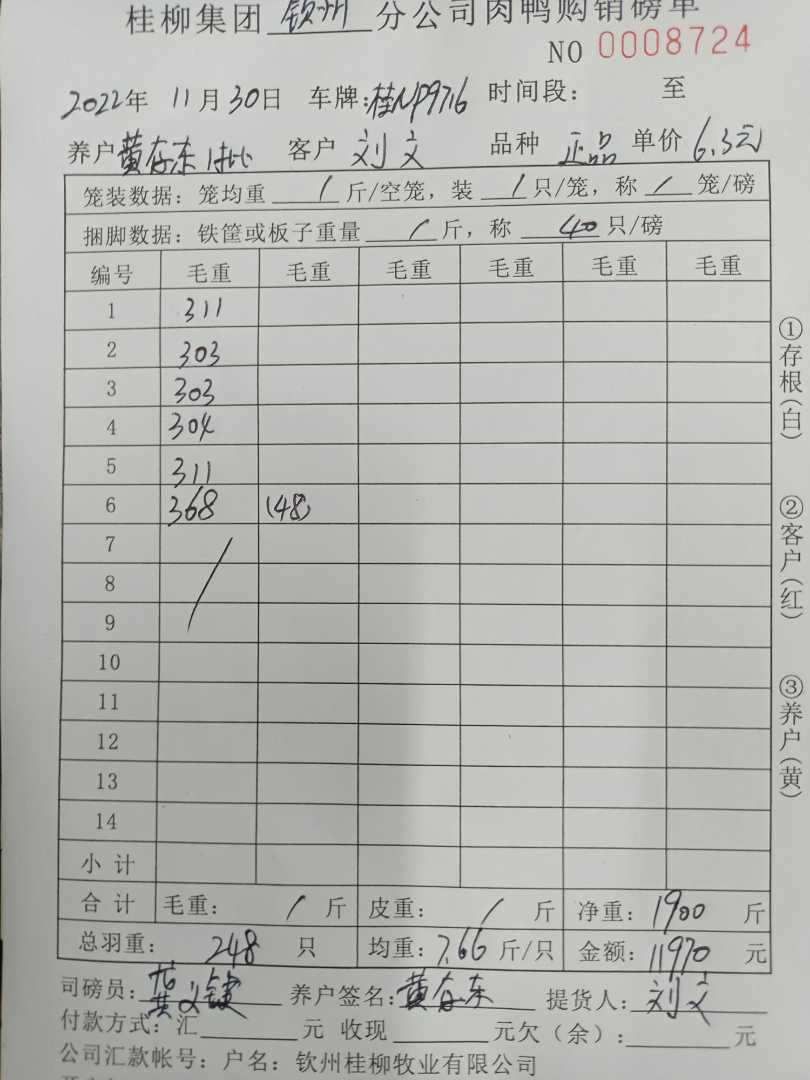 桂柳集团 钦州 分公司肉鸭购销磅单
NO 0008724
2022年 11月30日 车牌:桂NP9716 时间段: 至
养户 黄存东 1批 客户 刘文 品种 正品 单价 6.3元
笼装数据: 笼均重 / 斤/空笼, 装 / 只/笼, 称 / 笼/磅
捆脚数据: 铁筐或板子重量 / 斤, 称 40 只/磅
编号 毛重 毛重 毛重 毛重 毛重 毛重
1 311
2 303
3 303
4 304
5 311
6 368 (48)
7
8
9
10
11
12
13
14
小计
合计 毛重: / 斤 皮重: / 斤 净重: 1900 斤
总羽重: 248 只 均重: 7.66 斤/只 金额: 11970 元
司磅员: 黄义键 养户签名: 黄存东 提货人: 刘文
付款方式: 汇 元 收现 元欠(余): 元
公司汇款帐号: 户名: 钦州桂柳牧业有限公司
①存根(白)
②客户(红)
③养户(黄)